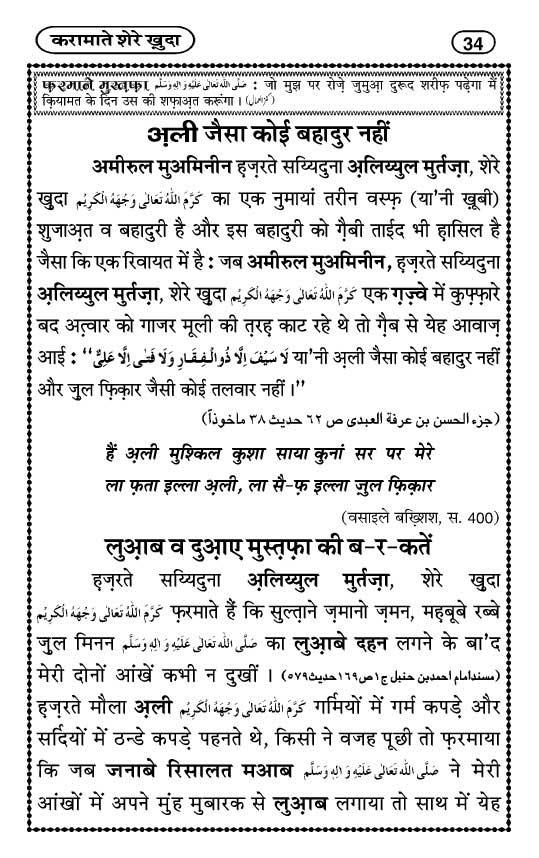 करामाते शेरे ख़ुदा
34
फ़रमाने मुस्तफ़ा صَلَّى اللهُ تَعَالٰى عَلَيْهِ وَاٰلِهٖ وَسَلَّم : जो मुझ पर रोज़े जुमुआ़ दुरूद शरीफ़ पढ़ेगा मैं
क़ियामत के दिन उस की शफ़ाअ़त करूंगा । (کنز العمال)
अ़ली जैसा कोई बहादुर नहीं
अमीरुल मुअमिनीन ह़ज़रते सय्यिदुना अ़लिय्युल मुर्तज़ा, शेरे
ख़ुदा كَرَّمَ اللهُ تَعَالٰى وَجْهَهُ الْكَرِيْم का एक नुमायां तरीन वस्फ़ (या'नी ख़ूबी)
शुजाअ़त व बहादुरी है और इस बहादुरी को ग़ैबी ताईद भी ह़ासिल है
जैसा कि एक रिवायत में है : जब अमीरुल मुअमिनीन, ह़ज़रते सय्यिदुना
अ़लिय्युल मुर्तज़ा, शेरे ख़ुदा كَرَّمَ اللهُ تَعَالٰى وَجْهَهُ الْكَرِيْم एक ग़ज़्वे में कुफ़्फ़ारे
बद अत़्वार को गाजर मूली की त़रह़ काट रहे थे तो ग़ैब से येह आवाज़
आई : “لَا سَيْفَ اِلَّا ذُوالْفِقَارِ وَلَا فَتٰى اِلَّا عَلِيٌّ या'नी अ़ली जैसा कोई बहादुर नहीं
और ज़ुल फ़िक़ार जैसी कोई तलवार नहीं ।”
(جزء الحسن بن عرفة العبدى ص ٦٢ حديث ٣٨ ماخوذاً)
हैं अ़ली मुश्किल कुशा साया कुनां सर पर मेरे
ला फ़ता इल्ला अ़ली, ला सै-फ़ इल्ला ज़ुल फ़िक़ार
(वसाइले बख़्शिश, स. 400)
लुआ़ब व दुआ़ए मुस्त़फ़ा की ब-र-कतें
ह़ज़रते सय्यिदुना अ़लिय्युल मुर्तज़ा, शेरे ख़ुदा
كَرَّمَ اللهُ تَعَالٰى وَجْهَهُ الْكَرِيْم फ़रमाते हैं कि सुल्त़ाने ज़मानो ज़मन, मह़बूबे रब्बे
ज़ुल मिनन صَلَّى اللهُ تَعَالٰى عَلَيْهِ وَاٰلِهٖ وَسَلَّم का लुआ़बे दहन लगने के बा'द
मेरी दोनों आंखें कभी न दुखीं । (مسند امام احمد بن حنبل ج١ص١٦٩حديث٥٧٩)
ह़ज़रते मौला अ़ली كَرَّمَ اللهُ تَعَالٰى وَجْهَهُ الْكَرِيْم गर्मियों में गर्म कपड़े और
सर्दियों में ठन्डे कपड़े पहनते थे, किसी ने वजह पूछी तो फ़रमाया
कि जब जनाबे रिसालत मआब صَلَّى اللهُ تَعَالٰى عَلَيْهِ وَاٰلِهٖ وَسَلَّم ने मेरी
आंखों में अपने मुंह मुबारक से लुआ़ब लगाया तो साथ में येह